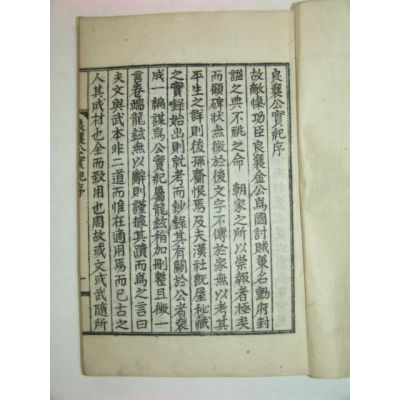 良襄公實紀序
故敵愾功臣良襄金公爲國討賊策名勳府封
謚之典不祧之命 朝家之所以崇報者極矣
而顯碑狀無徵於後文字不傳於家無以考其
平生之詳則後孫齎恨焉及夫漢社旣屋秘藏
之實錄始出則就考而鈔錄其有關於公者裒
成一編謀爲公實紀屬龍鉉稍加刪整且徵一
言卷端龍鉉無以辭則謹據其蹟而爲之言曰
夫文與武本非二道而惟在適用焉而已古之
人其成材也全而致用也周故或文或武隨所
良襄公實紀序 一